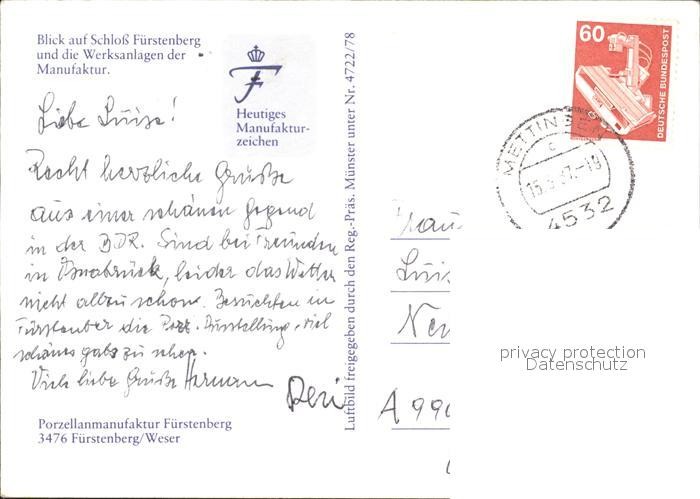 Blick auf Schloß Fürstenberg
und die Werksanlagen der
Manufaktur.
F
Heutiges
Manufaktur-
zeichen
Liebe Luise!
Recht herzliche Grüße
aus einer schönen Gegend
in der BDR. Sind bei Freunden
in Osnabrück, leider das Wetter
nicht allzu schön. Besuchten in
Fürstenber die Porz. Ausstellung, viel
schönes gabs zu sehen.
Viele liebe Grüße Hermann
Porzellanmanufaktur Fürstenberg
3476 Fürstenberg/Weser
Luftbild freigegeben durch den Reg.-Präs. Münster unter Nr. 4722/78
60
DEUTSCHE BUNDESPOST
METTINGEN
c
4532
Frau
Luis
A 990
privacy protection
Datenschutz